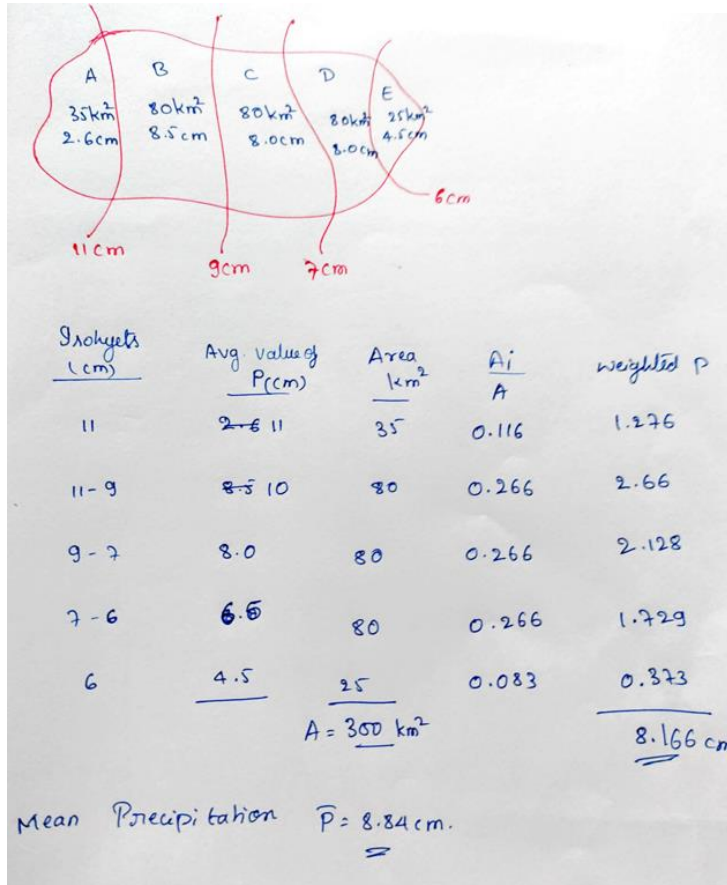 A B C D E
35km² 80km² 80km² 80km² 25km²
2.6cm 8.5cm 8.0cm 8.0cm 4.5cm
6cm
11cm 9cm 7cm
Isohyets (cm) Avg. value of P(cm) Area km² Ai/A weighted P
11 2.6 11 35 0.116 1.276
11-9 8.5 10 80 0.266 2.66
9-7 8.0 80 0.266 2.128
7-6 6.5 80 0.266 1.729
6 4.5 25 0.083 0.373
A = 300 km² 8.166 cm
Mean Precipitation P̅ = 8.84 cm.